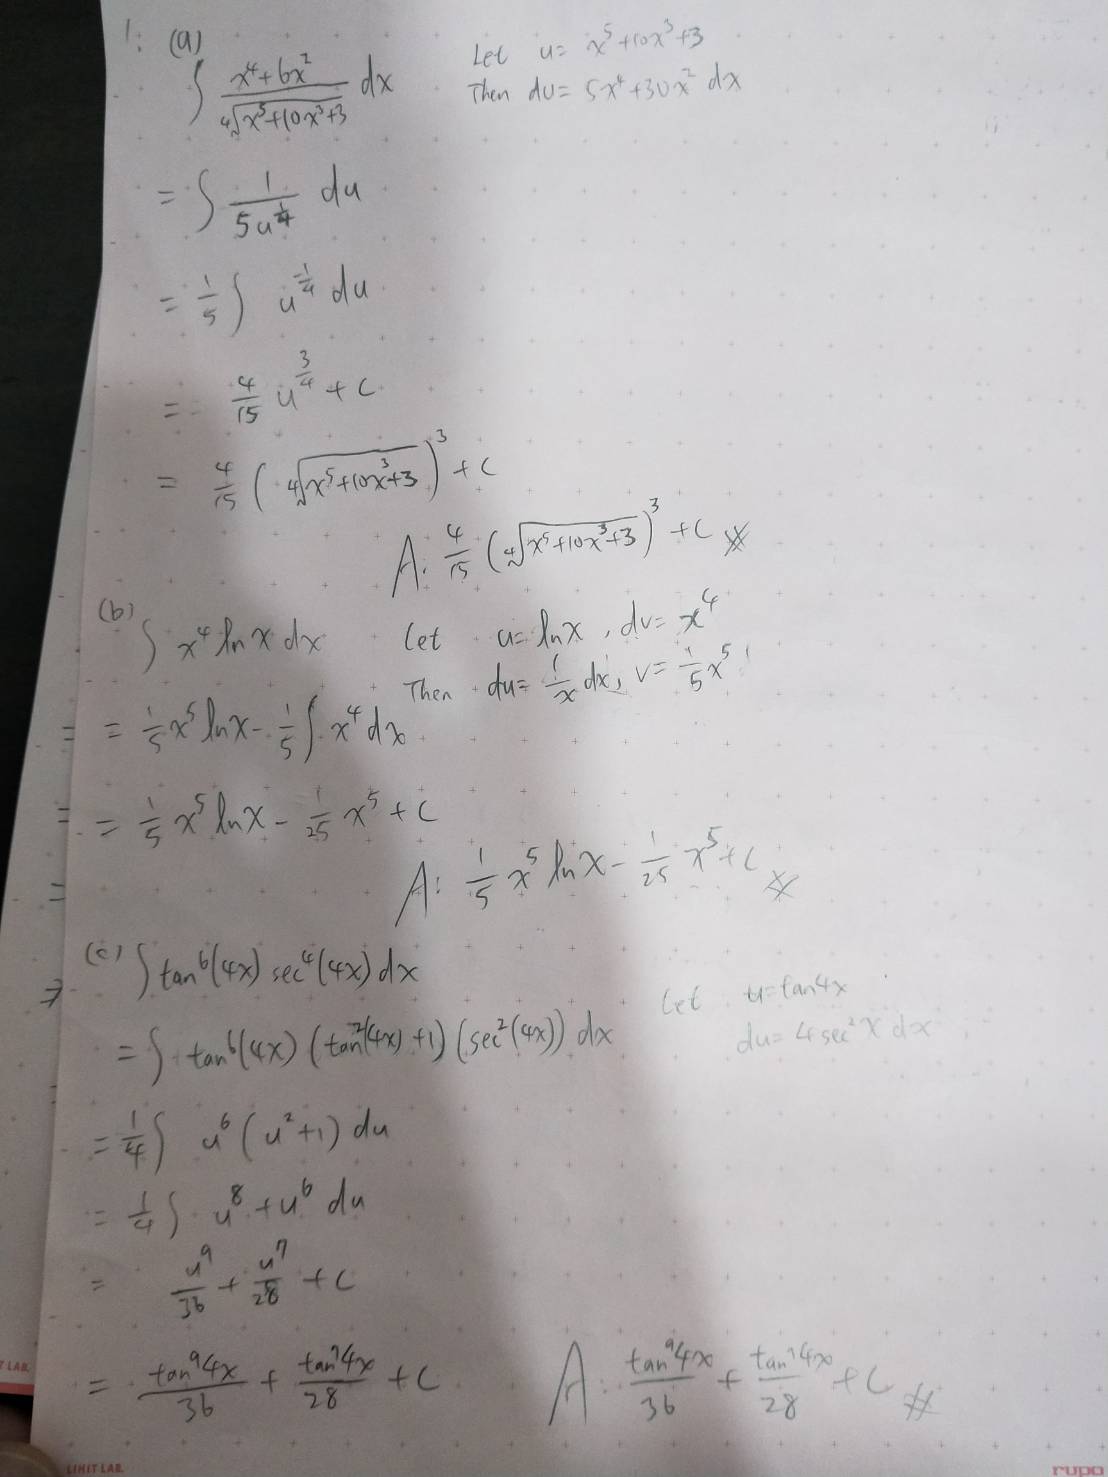 1. (a)
∫ (x⁴+6x²)/(⁴√(x⁵+10x³+3)) dx Let u= x⁵+10x³+3
Then du= 5x⁴+30x² dx
= ∫ 1/(5u^(1/4)) du
= 1/5 ∫ u^(-1/4) du
= 4/15 u^(3/4) + C
= 4/15 (⁴√(x⁵+10x³+3))³ + C
A: 4/15 (⁴√(x⁵+10x³+3))³ + C
(b) ∫ x⁴ ln x dx Let u= ln x, dv= x⁴
Then du= 1/x dx, v= 1/5 x⁵
= 1/5 x⁵ ln x - 1/5 ∫ x⁴ dx
= 1/5 x⁵ ln x - 1/25 x⁵ + C
A: 1/5 x⁵ ln x - 1/25 x⁵ + C
(c) ∫ tan⁶(4x) sec⁴(4x) dx
Let u=tan4x
= ∫ tan⁶(4x) (tan²(4x)+1) (sec²(4x)) dx
du= 4sec²x dx
= 1/4 ∫ u⁶ (u²+1) du
= 1/4 ∫ u⁸+u⁶ du
= u⁹/36 + u⁷/28 + C
= tan⁹4x/36 + tan⁷4x/28 + C
A: tan⁹4x/36 + tan⁷4x/28 + C
LAB.
LIHIT LAB.
rupo